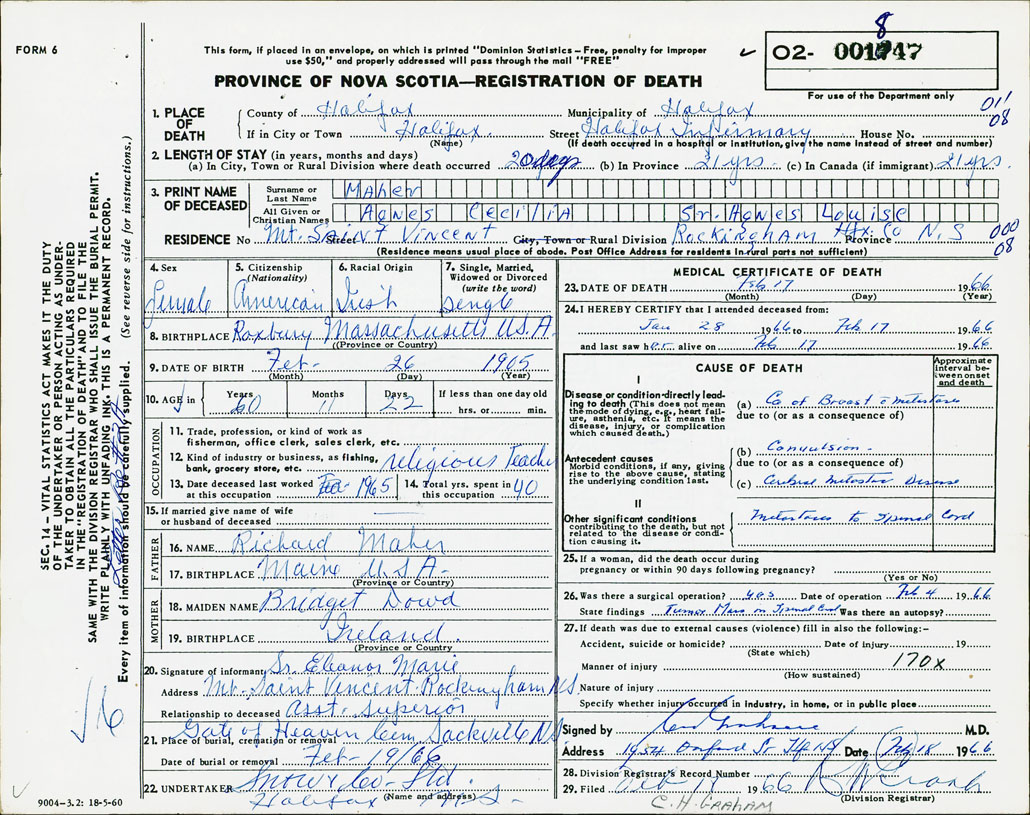 8
FORM 6
This form, if placed in an envelope, on which is printed "Dominion Statistics – Free, penalty for improper
use $50," and properly addressed will pass through the mail "FREE"
PROVINCE OF NOVA SCOTIA—REGISTRATION OF DEATH
✓ 02- 001747
For use of the Department only
011
08
1. PLACE OF DEATH
County of Halifax Municipality of Halifax
If in City or Town Halifax. Street Halifax Infirmary House No.
(Name) (If death occurred in a hospital or institution, give the name instead of street and number)
2. LENGTH OF STAY (in years, months and days)
(a) In City, Town or Rural Division where death occurred 20 days (b) In Province 21 yrs. (c) In Canada (if immigrant) 21 yrs.
3. PRINT NAME OF DECEASED
Surname or Last Name Maher
All Given or Christian Names Agnes Cecilia Sr. Agnes Louise
RESIDENCE No Mt. Saint Vincent Street City, Town or Rural Division Rockingham Hfx. Co Province N.S
000
08
(Residence means usual place of abode. Post Office Address for residents in rural parts not sufficient)
4. Sex Female
5. Citizenship (Nationality) American
6. Racial Origin Irish
7. Single, Married, Widowed or Divorced (write the word) Single
8. BIRTHPLACE Roxbury Massachusetts U.S.A.
(Province or Country)
9. DATE OF BIRTH Feb- 26 1905
(Month) (Day) (Year)
10. AGE Years 60 Months 11 Days 22 If less than one day old hrs. or min.
OCCUPATION
11. Trade, profession, or kind of work as
fisherman, office clerk, sales clerk, etc.
12. Kind of industry or business, as fishing,
bank, grocery store, etc. religious Teacher
13. Date deceased last worked
at this occupation 1965
14. Total yrs. spent in
this occupation 40
15. If married give name of wife
or husband of deceased
FATHER
16. NAME Richard Maher
17. BIRTHPLACE Maine U.S.A.
(Province or Country)
MOTHER
18. MAIDEN NAME Bridget Dowd
19. BIRTHPLACE Ireland.
(Province or Country)
20. Signature of informant Sr. Eleanor Marie
Address Mt. Saint Vincent. Rockingham NS
Relationship to deceased Asst. Superior
Gate of Heaven Cem. Sackville NS
21. Place of burial, cremation or removal
Date of burial or removal Feb- 19/66
22. UNDERTAKER Snow & Co- Ltd.
(Name and address)
Halifax N.S-
MEDICAL CERTIFICATE OF DEATH
23. DATE OF DEATH Feb 17 1966
(Month) (Day)
24. I HEREBY CERTIFY that I attended deceased from:
Jan 28 1966 to Feb 17 1966
and last saw her alive on Feb 17 1966
CAUSE OF DEATH
Approximate interval between onset and death
I
Disease or condition directly leading to death (This does not mean the mode of dying, e.g., heart failure, asthenia, etc. It means the disease, injury, or complication which caused death.)
(a) Ca of Breast c metastases
due to (or as a consequence of)
Antecedent causes
Morbid conditions, if any, giving rise to the above cause, stating the underlying condition last.
(b) Convulsion.
due to (or as a consequence of)
(c) Cerebral metastases Disease
II
Other significant conditions
contributing to the death, but not related to the disease or condition causing it.
Metastases to Spinal Cord
25. If a woman, did the death occur during
pregnancy or within 90 days following pregnancy?
(Yes or No)
26. Was there a surgical operation? yes Date of operation Feb 4 1966
State findings Tumor Mass on Spinal Cord Was there an autopsy?
27. If death was due to external causes (violence) fill in also the following:–
Accident, suicide or homicide? Date of injury 19
(State which)
170x
Manner of injury
(How sustained)
Nature of injury
Specify whether injury occurred in industry, in home, or in public place
Signed by M.D.
Address Oxford St Hfx NS Date Feb 18 1966
28. Division Registrar's Record Number
29. Filed Feb 1966
(Division Registrar)
C. H. GRAHAM
SEC. 14 – VITAL STATISTICS ACT MAKES IT THE DUTY
OF THE UNDERTAKER OR PERSON ACTING AS UNDER-
TAKER TO OBTAIN ALL THE PARTICULARS REQUIRED
IN THE "REGISTRATION OF DEATH" AND TO FILE THE
SAME WITH THE DIVISION REGISTRAR WHO SHALL ISSUE THE BURIAL PERMIT.
WRITE PLAINLY WITH UNFADING INK. THIS IS A PERMANENT RECORD.
Every item of information should be carefully supplied. (See reverse side for instructions.)
✓ 6
9004–3.2: 18-5-60